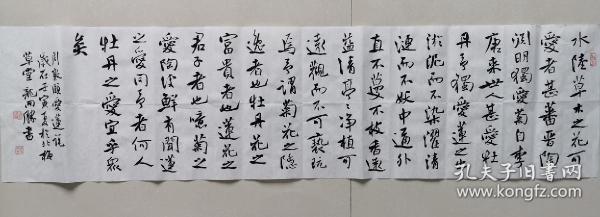 水陸草木之花可
愛者甚蕃晉陶
淵明獨愛菊自李
唐来世人甚愛牡
丹予獨愛蓮之出
淤泥而不染濯清
漣而不妖中通外
直不蔓不枝香遠
益清亭々净植可
遠觀而不可褻玩
焉予謂菊花之隐
逸者也牡丹花之
富貴者也蓮花之
君子者也噫菊之
愛陶後鮮有聞蓮
之愛同予者何人
牡丹之愛宜乎眾
矣
周敦頤愛蓮説
歲在壬寅夏於北梅
草堂 書
孔夫子旧书网
book.kongfz.com